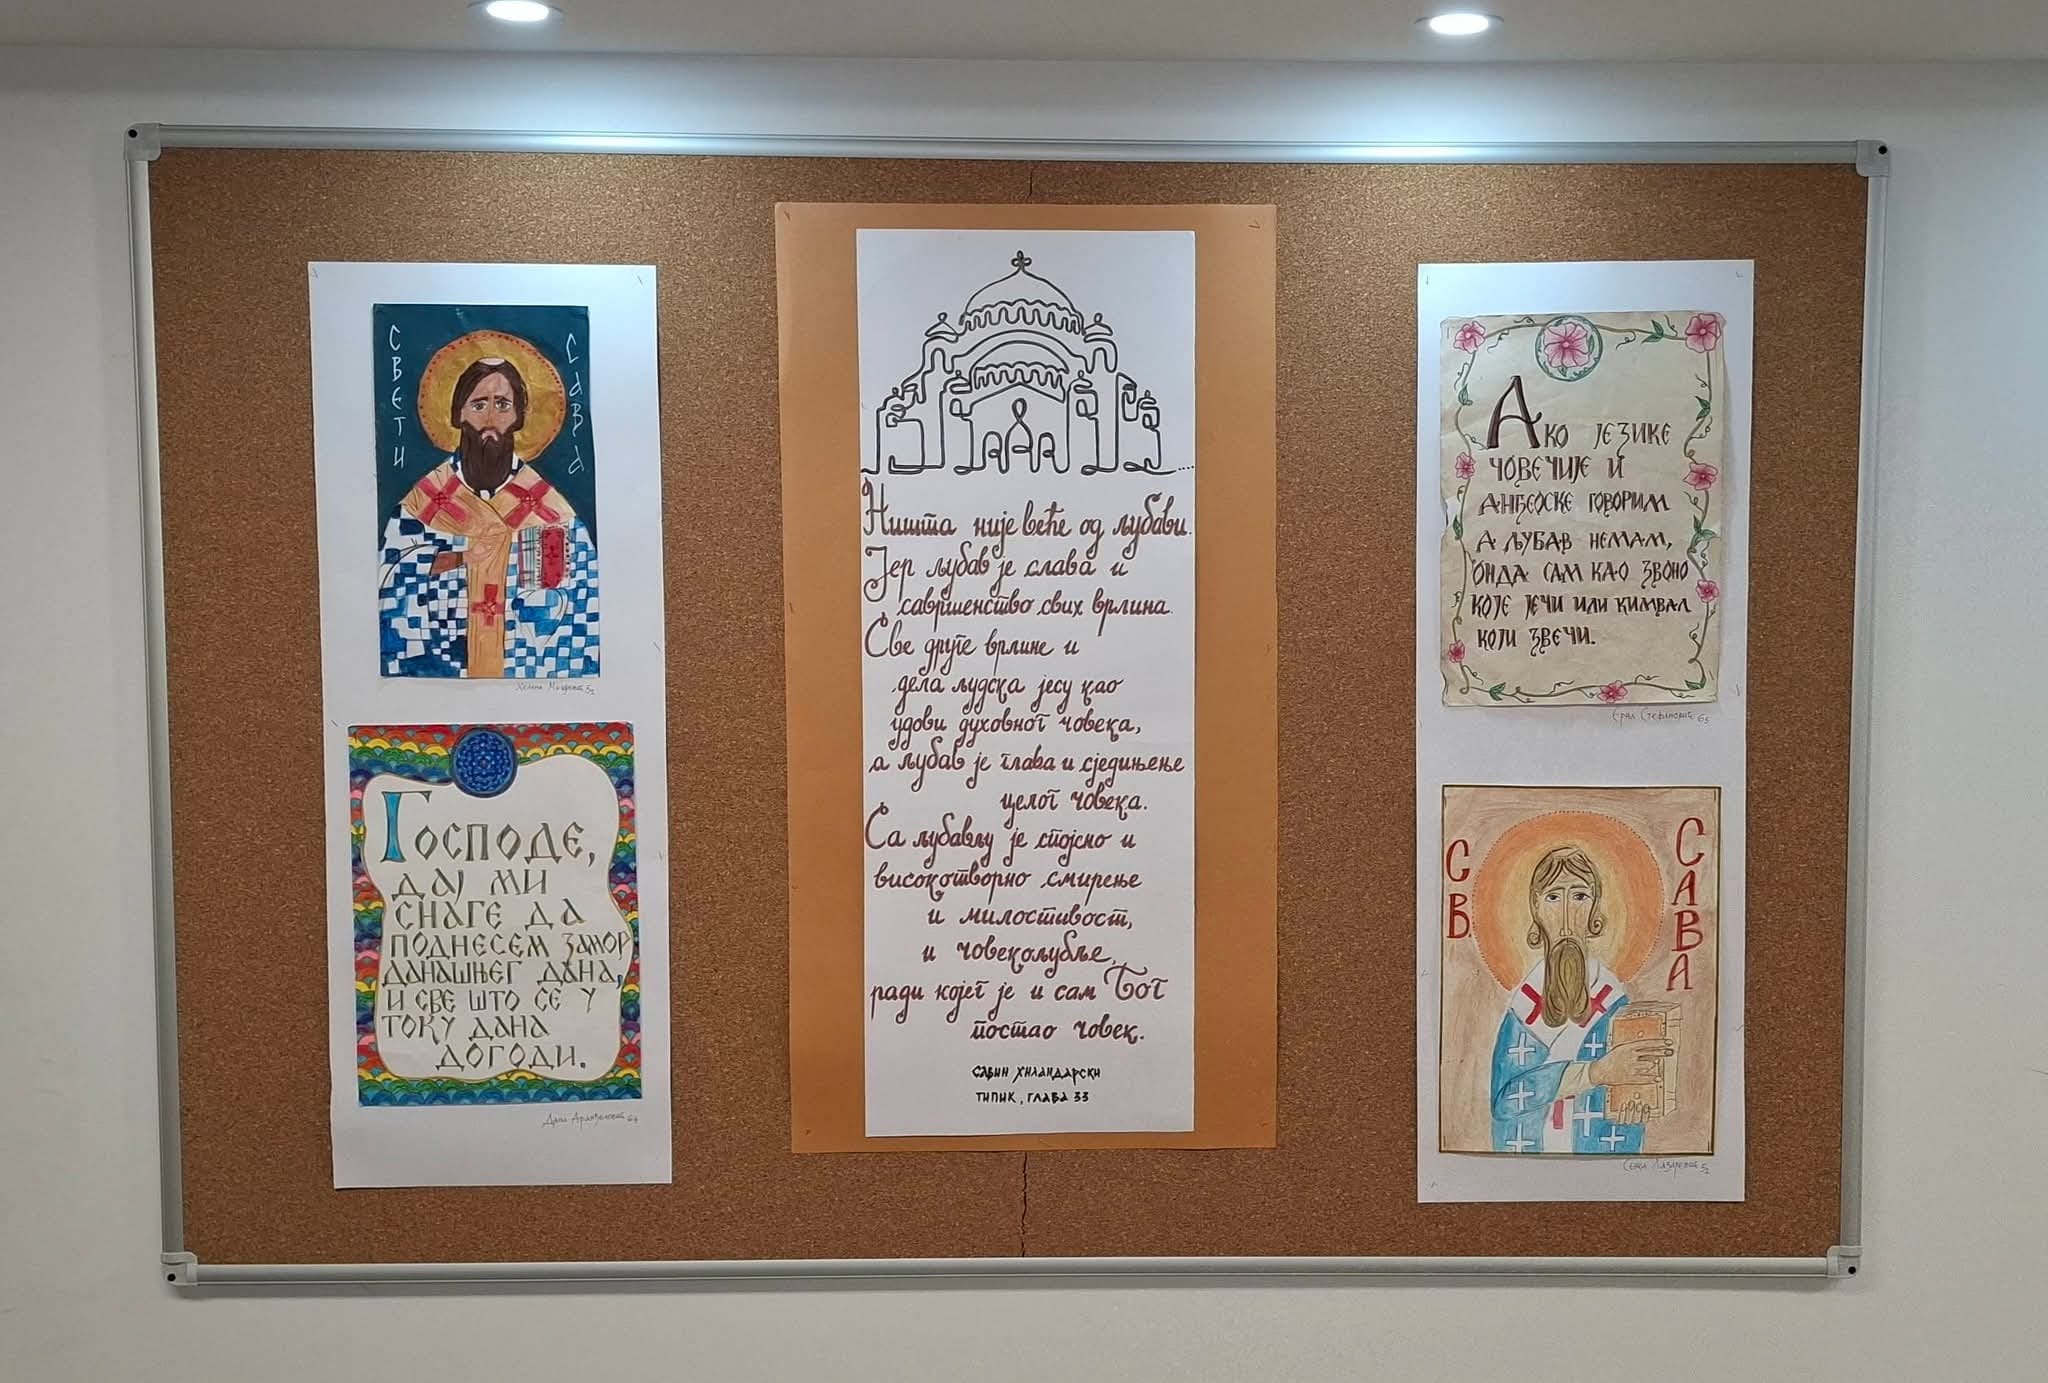 СВЕТИ
САВА
Господе,
дај ми
снаге да
поднесем замор
данашњег дана,
и све што се у
току дана
догоди.
Ништа није веће од љубави.
Јер љубав је слава и
савршенство свих врлина.
Све друге врлине и
дела људска јесу као
удови духовног човека,
а љубав је глава и сједињење
целог човека.
Са љубављу је спојено и
високотворно смирење
и милостивост,
и човекољубље,
ради којег је и сам Бог
постао човек.
САВИН ХИЛАНДАРСКИ
ТИПИК, ГЛАВА 33
Ако језике
човечије и
анђеоске говорим
а љубав немам,
онда сам као звоно
које јечи или кимвал
који звечи.
Стефановић
СВ.
САВА